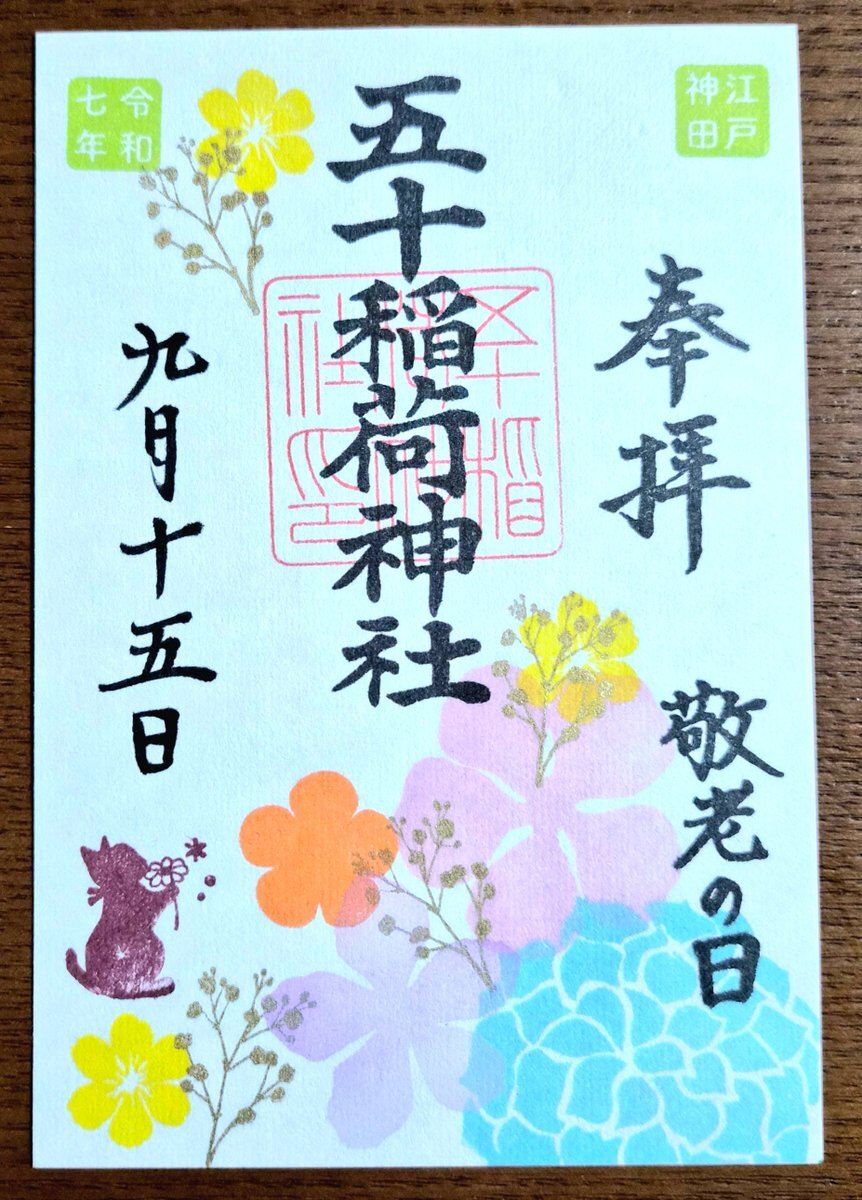 江戸
神田
奉拝
敬老の日
五十稲荷神社
令和
七年
九月十五日